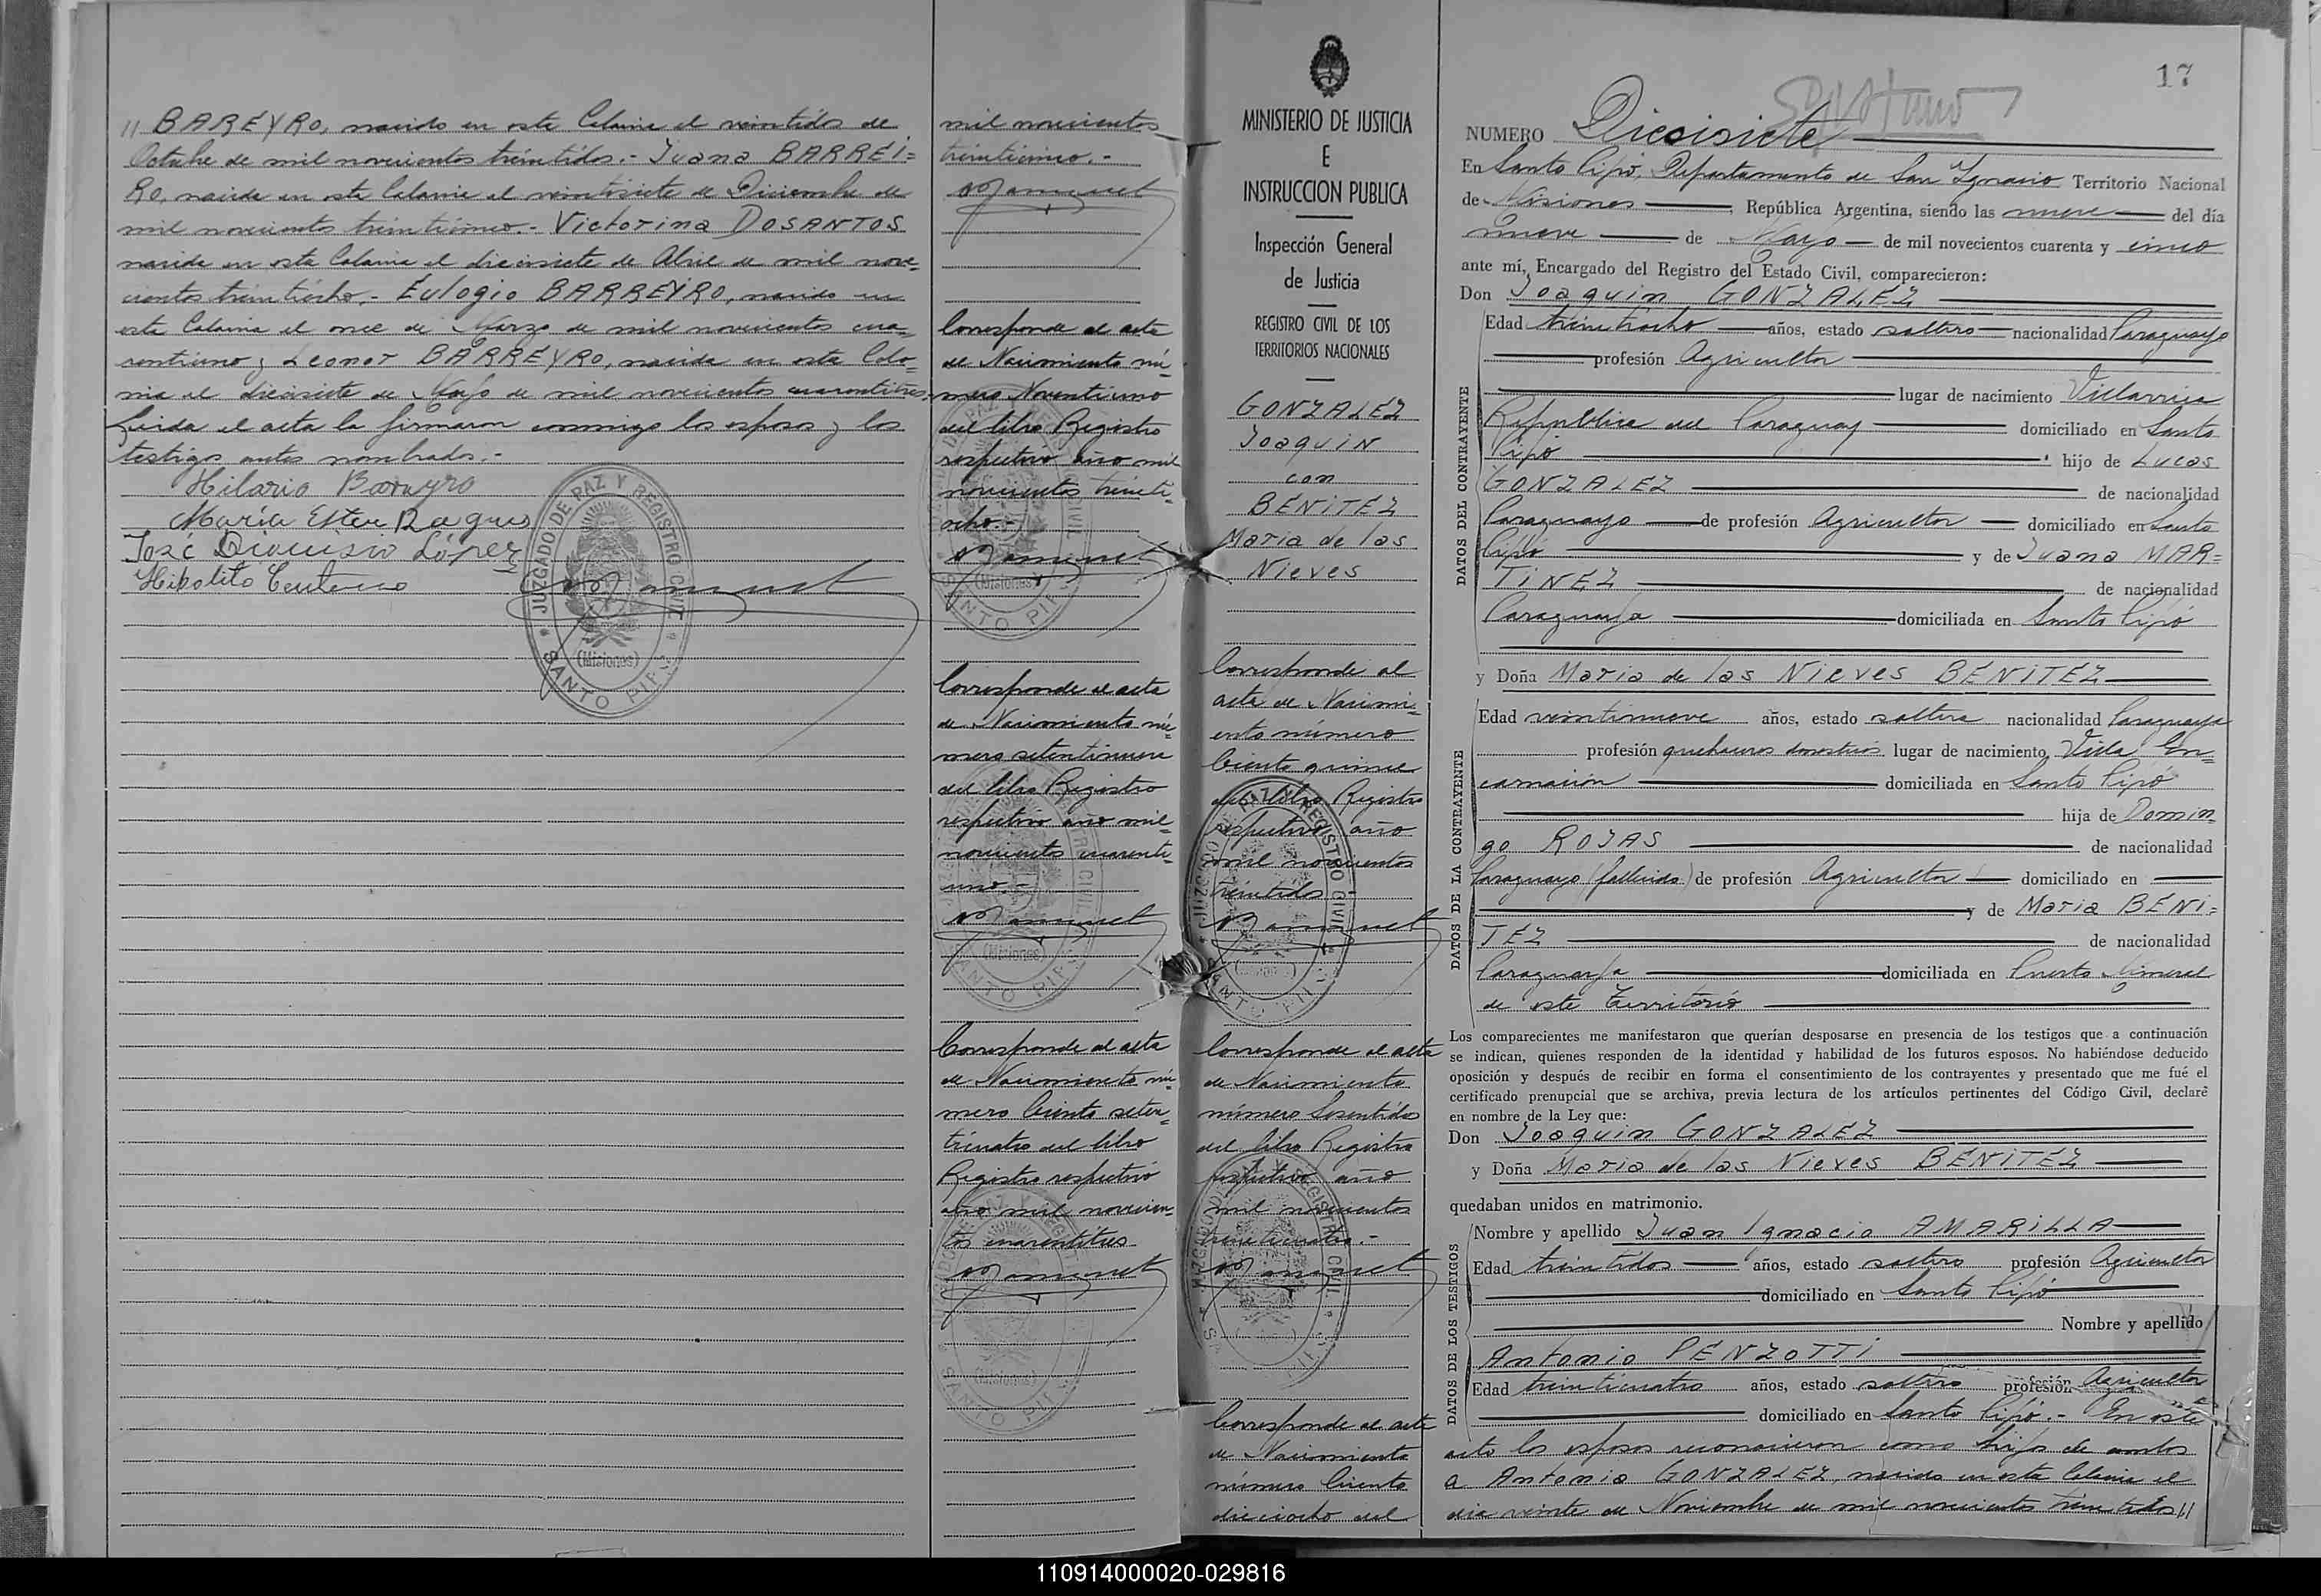 // BAREYRO, nacido en esta Colonia el veintidos de
Octubre de mil novecientos treintidos.- Juana BARREI=
RO, nacida en esta Colonia el veintisiete de Diciembre de
mil novecientos treinticinco.- Victorina DOSANTOS
nacida en esta Colonia el diecisiete de Abril de mil nove-
cientos treintiocho.- Eulogio BARREYRO, nacido en
esta Colonia el once de Marzo de mil novecientos cua-
rentiuno y Leonor BARREYRO, nacida en esta Colo-
nia el diecisiete de Mayo de mil novecientos cuarentitres.
Leida el acta la firmaron conmigo los esposos y los
testigos antes nombrados.-
Hilario Barreyro
María Ester
José Dionisio López
Hipolito Centeno
JUZGADO DE PAZ Y REGISTRO CIVIL
(Misiones)
SANTO PIPÓ
mil novecientos
treinticinco.-
Corresponde al acta
de Nacimiento nú-
mero Noventiuno
del libro Registro
respectivo año mil
novecientos treinti-
ocho.-
Corresponde al acta
de Nacimiento nú-
mero setentinueve
del libro Registro
respectivo año mil
novecientos cuarenti-
uno.-
Corresponde al acta
de Nacimiento nú-
mero Ciento seten-
ticuatro del libro
Registro respectivo
año mil novecien-
tos cuarentitres
MINISTERIO DE JUSTICIA
E
INSTRUCCION PUBLICA
Inspección General
de Justicia
REGISTRO CIVIL DE LOS
TERRITORIOS NACIONALES
GONZALEZ
Joaquin
con
BENITEZ
Maria de las
Nieves
Corresponde al
acta de Nacimi-
ento número
Ciento quince
del libro Registro
respectivo año
mil novecientos
treintidos
Corresponde al acta
de Nacimiento
número Sesentidos
del libro Registro
respectivo año
mil novecientos
treinticuatro.-
Corresponde al acta
de Nacimiento
número Ciento
dieciocho del
17
NUMERO Diecisiete
En Santo Pipó, Departamento de San Ignacio Territorio Nacional
de Misiones, República Argentina, siendo las nueve del día
nueve de Mayo de mil novecientos cuarenta y cinco
ante mí, Encargado del Registro del Estado Civil, comparecieron:
Don Joaquin GONZALEZ
DATOS DEL CONTRAYENTE
Edad treintiocho años, estado soltero nacionalidad Paraguayo
profesión Agricultor
lugar de nacimiento Villarrica
Republica del Paraguay domiciliado en Santo
Pipó hijo de Lucas
GONZALEZ de nacionalidad
Paraguayo de profesión Agricultor domiciliado en Santo
Pipó y de Juana MAR=
TINEZ de nacionalidad
Paraguaya domiciliada en Santo Pipó
y Doña Maria de las Nieves BENITEZ
DATOS DE LA CONTRAYENTE
Edad veintinueve años, estado soltera nacionalidad Paraguaya
profesión quehaceres domesticos lugar de nacimiento Villa En=
carnación domiciliada en Santo Pipó
hija de Domin=
go ROJAS de nacionalidad
Paraguayo (fallecido) de profesión Agricultor domiciliado en
y de Maria BENI=
TEZ de nacionalidad
Paraguaya domiciliada en Puerto Mineral
de este Territorio
Los comparecientes me manifestaron que querían desposarse en presencia de los testigos que a continuación
se indican, quienes responden de la identidad y habilidad de los futuros esposos. No habiéndose deducido
oposición y después de recibir en forma el consentimiento de los contrayentes y presentado que me fué el
certificado prenupcial que se archiva, previa lectura de los artículos pertinentes del Código Civil, declaré
en nombre de la Ley que:
Don Joaquin GONZALEZ
y Doña Maria de las Nieves BENITEZ
quedaban unidos en matrimonio.
DATOS DE LOS TESTIGOS
Nombre y apellido Juan Ignacio AMARILLA
Edad treintidos años, estado soltero profesión Agricultor
domiciliado en Santo Pipó
Nombre y apellido
Antonio PENZOTTI
Edad treinticuatro años, estado soltero profesión Agricultor
domiciliado en Santo Pipó.- En este
acto los esposos reconocieron como hijos de ambos
a Antonio GONZALEZ, nacido en esta Colonia el
dia veinte de Noviembre de mil novecientos treintidos//
110914000020-029816